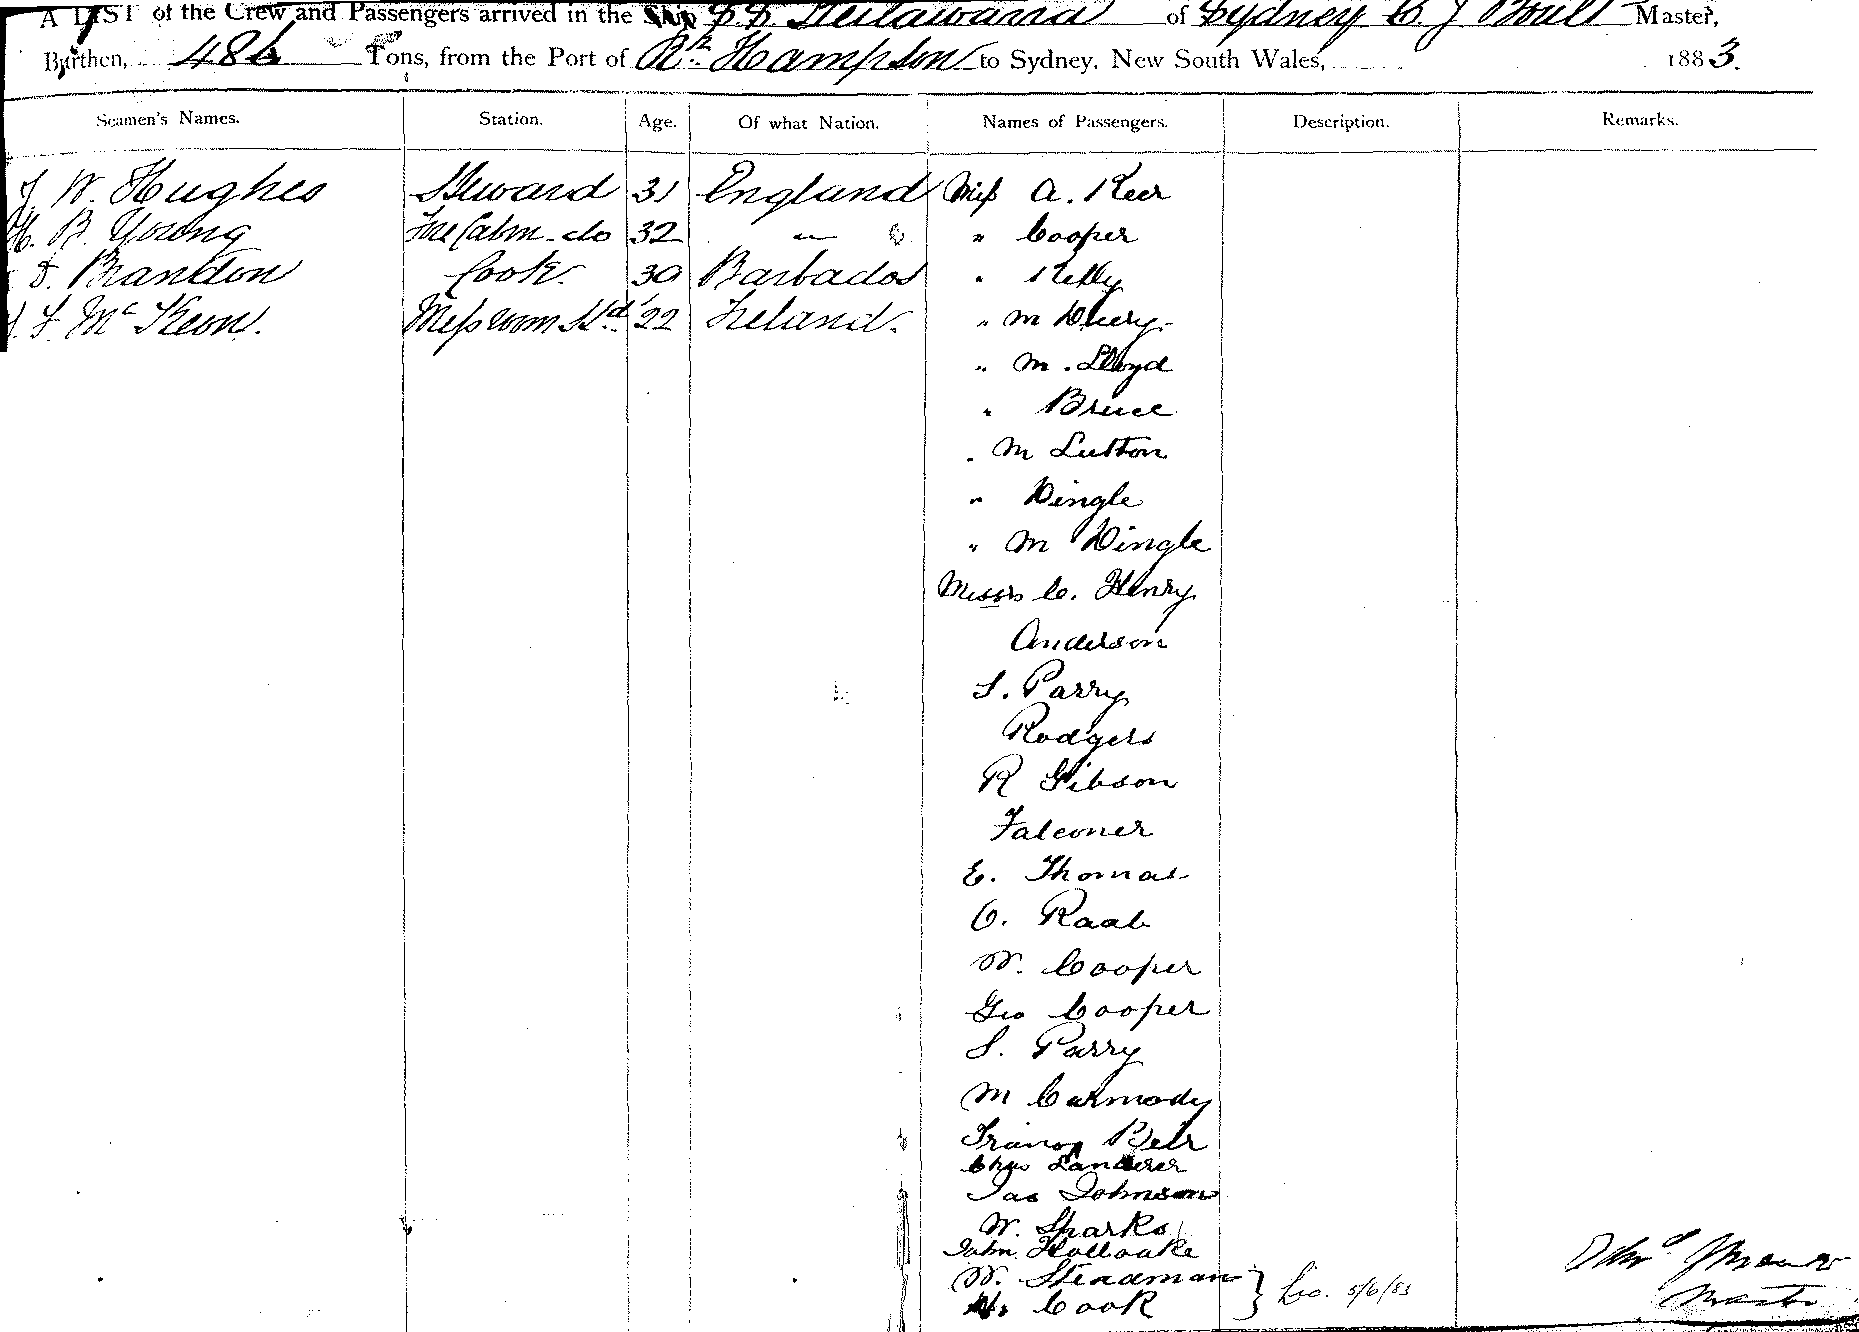 A LIST of the Crew and Passengers arrived in the Ship S.S. Keilawarra of Sydney C J Boult Master,
Burthen, 486 Tons, from the Port of Rk. Hampton to Sydney, New South Wales, 1883.
Seamen's Names. Station. Age. Of what Nation. Names of Passengers. Description. Remarks.
J. W. Hughes Steward 31 England Miss A. Keer
H. B. Young Fre Cabin do 32 " " Cooper
F. Brandon Cook. 30 Barbados " Kelly
J. F. McKeon. Messroom Std. 22 Ireland. " M
" M. Lloyd
" Bruce
" M Lutton
" Dingle
" M Dingle
Messrs C. Henry
Anderson
S. Parry
Rodgers
R Gibson
Falconer
E. Thomas
O. Raab
W. Cooper
Geo Cooper
S. Parry
M Carmody
Francis
Chas Landerer
Jas Johnson
W. Sparks
John Holloake
W. Steadman
Cook } 5/6/83
Master